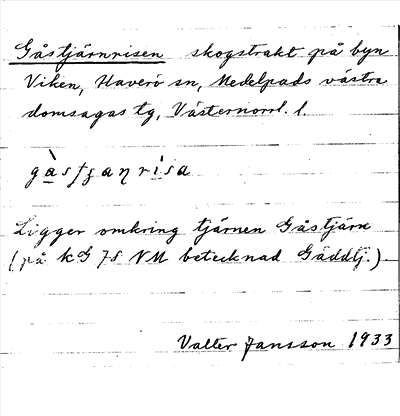 Gåstjärnrisen skogstrakt på byn
Viken, Haverö sn, Medelpads västra
domsagas tg, Västernorrl. l.
Ligger omkring tjärnen Gåstjärn
(på kG 78 NM betecknad Gäddtj.).
Valter Jansson 1933